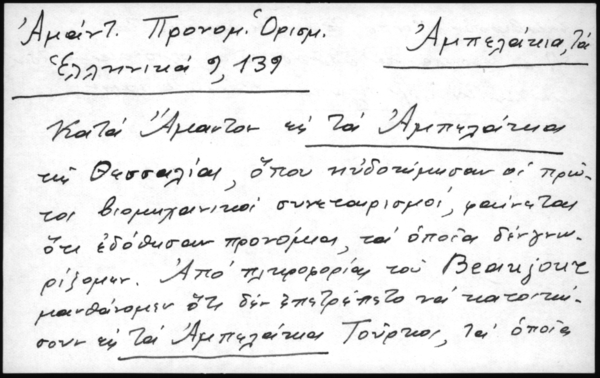 Ἀμάντ. Προνομ. Ὁρισμ. Ἀμπελάκια, τά
Ἑλληνικά 9, 139
Κατά Ἄμαντον εἰς τά Ἀμπελάκια
τῆς Θεσσαλίας, ὅπου ηὐδοκίμησαν οἱ πρῶ-
τοι βιομηχανικοί συνεταιρισμοί, φαίνεται
ὅτι ἐδόθησαν προνόμια, τά ὁποῖα δέν γνω-
ρίζομεν. Ἀπό πληροφορίας τοῦ Beaujour
μανθάνομεν ὅτι δέν ἐπετρέπετο νά κατοική-
σουν εἰς τά Ἀμπελάκια Τοῦρκοι, τά ὁποῖα